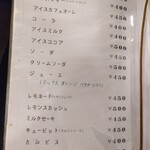 アイスカフェオーレ ¥450
コーラ ¥400
アイスミルク ¥400
アイスココア ¥450
ソーダ ¥400
クリームソーダ ¥500
ジュース ¥450
レモネード
レモンスカッシュ ¥500
ミルクセーキ ¥450
キューピット ¥450
カルピス ¥400